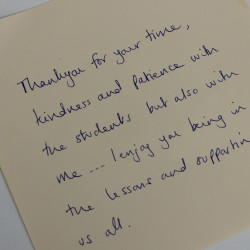 Thankyou for your time,
kindness and patience with
the students but also with
me --- I enjoy you being in
the lessons and supportin
us all.